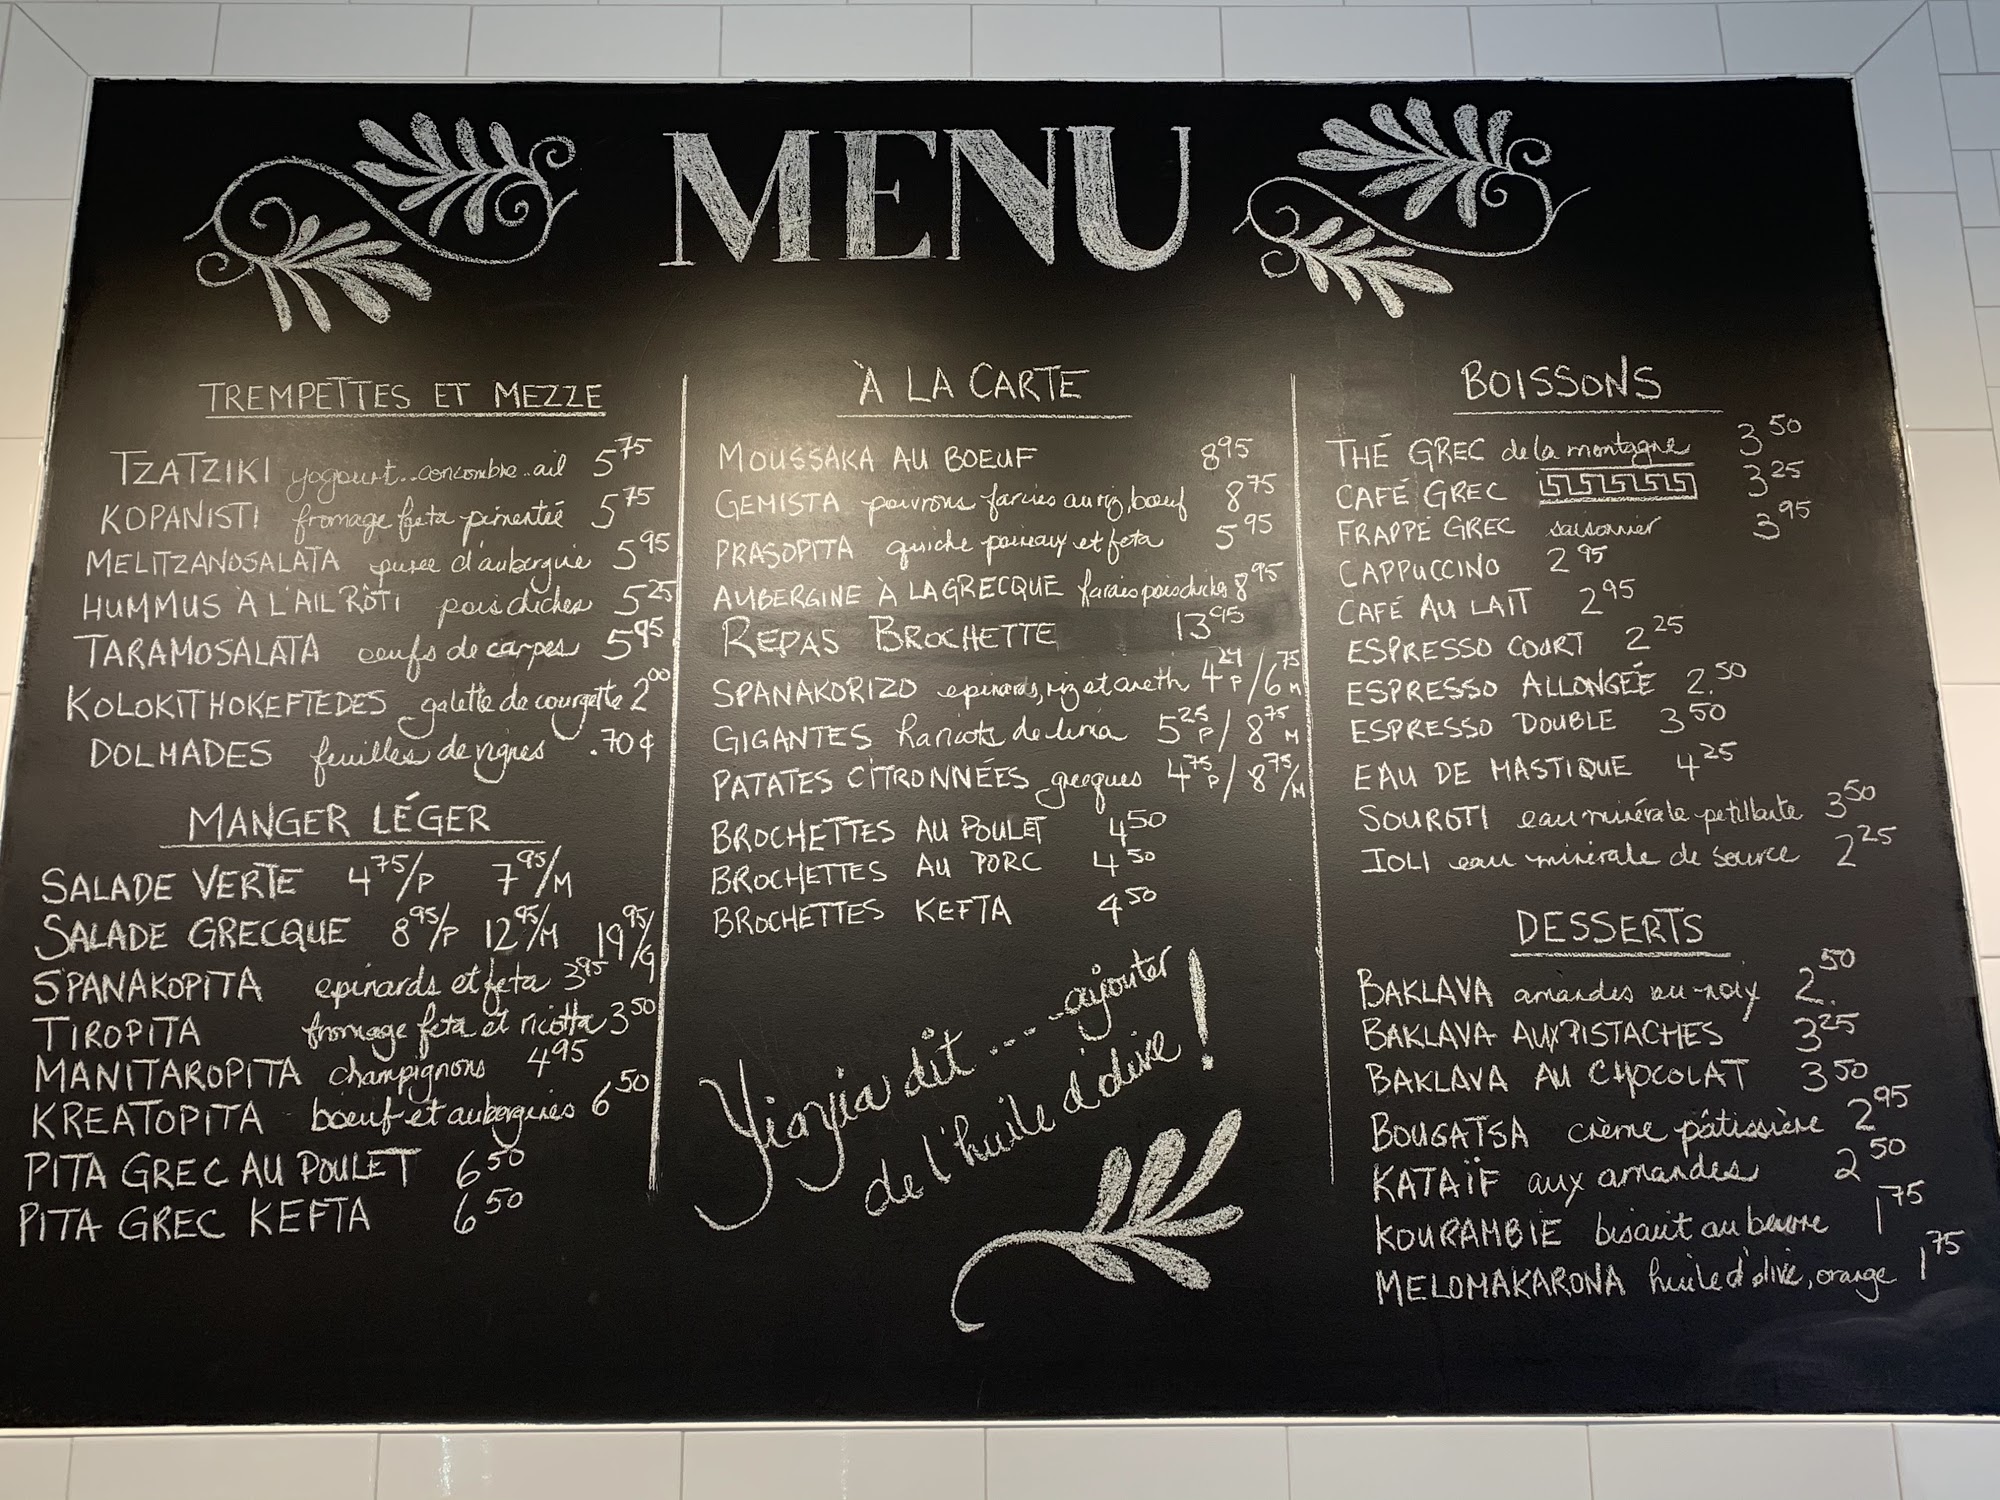 MENU
TREMPETTES ET MEZZE
TZATZIKI yogourt..concombre..ail 5 75
KOPANISTI fromage feta pimentée 5 75
MELITZANOSALATA purée d'aubergine 5 95
HUMMUS À L'AIL RÔTI pois chiches 5 25
TARAMOSALATA oeufs de carpes 5 95
KOLOKITHOKEFTEDES galette de courgette 2 00
DOLMADES feuilles de vignes .70¢
MANGER LÉGER
SALADE VERTE 4 75/P 7 95/M
SALADE GRECQUE 8 95/P 12 95/M 19 95/G
SPANAKOPITA epinards et feta 3 95
TIROPITA fromage feta et ricotta 3 50
MANITAROPITA champignons 4 95
KREATOPITA boeuf et aubergines 6 50
PITA GREC AU POULET 6 50
PITA GREC KEFTA 6 50
À LA CARTE
MOUSSAKA AU BOEUF 8 95
GEMISTA poivrons farcies au riz, boeuf 8 75
PRASOPITA quiche poireaux et feta 5 95
AUBERGINE À LA GRECQUE farcies pois chiches 8 95
REPAS BROCHETTE 13 95
SPANAKORIZO epinards, riz et aneth 4 24 P/6 75 M
GIGANTES haricots de lima 5 25 P/ 8 75 M
PATATES CITRONNÉES grecques 4 75 P/ 8 75/M
BROCHETTES AU POULET 4 50
BROCHETTES AU PORC 4 50
BROCHETTES KEFTA 4 50
Yiayia dit ---- ajouter
de l'huile d'olive !
BOISSONS
THÉ GREC de la montagne 3 50
CAFÉ GREC 3 25
FRAPPÉ GREC saisonnier 3 95
CAPPUCCINO 2 95
CAFÉ AU LAIT 2 95
ESPRESSO COURT 2 25
ESPRESSO ALLONGÉE 2.50
ESPRESSO DOUBLE 3 50
EAU DE MASTIQUE 4 25
SOUROTI eau minérale petillante 3 50
IOLI eau minérale de source 2 25
DESSERTS
BAKLAVA amandes ou noix 2.50
BAKLAVA AUX PISTACHES 3 25
BAKLAVA AU CHOCOLAT 3 50
BOUGATSA crème pâtissière 2 95
KATAÏF aux amandes 2 50
KOURAMBIE biscuit au beurre 1 75
MELOMAKARONA huile d'olive, orange 1 75